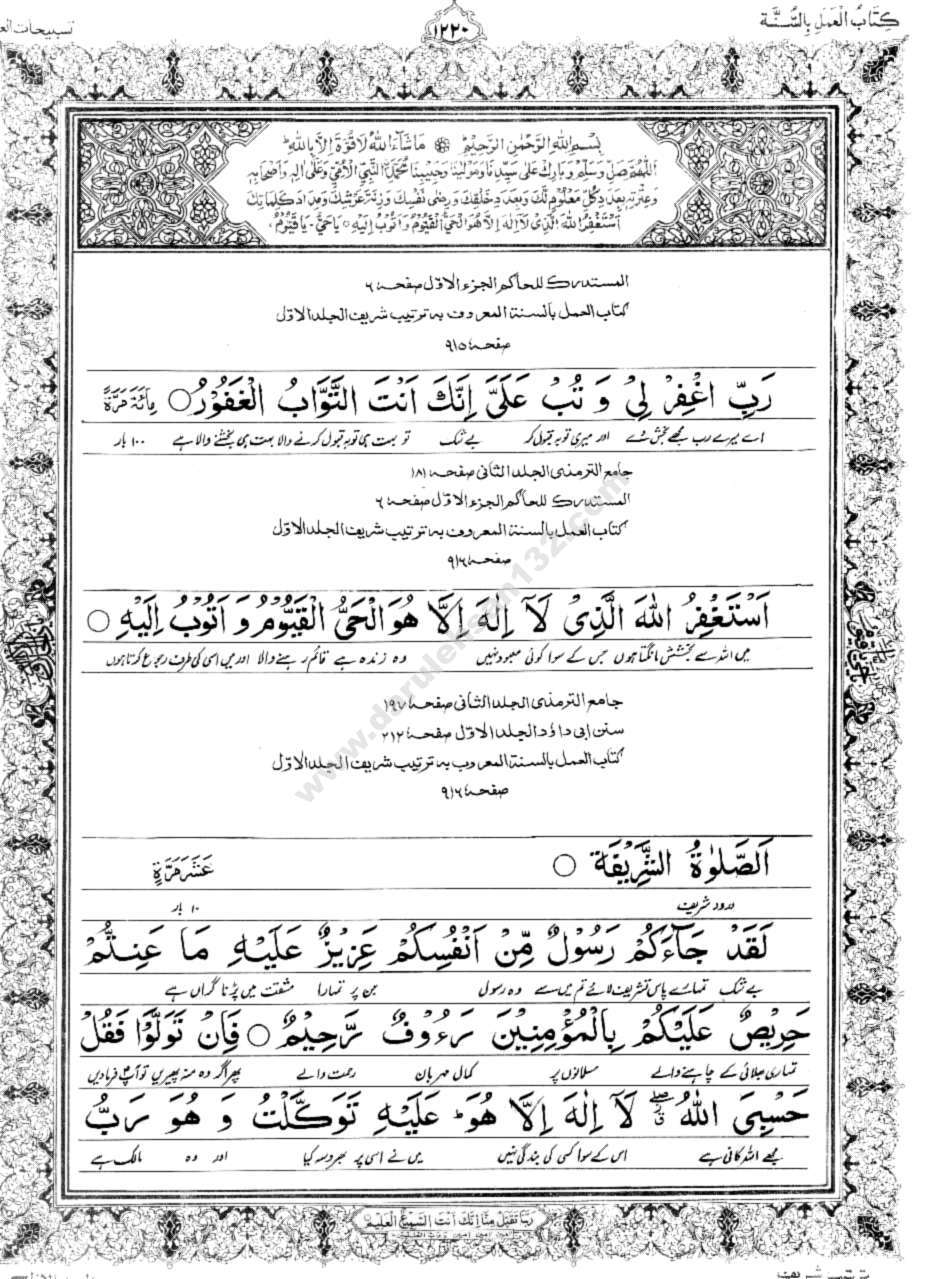 كِتَابُ الْعَمَلِ بِالسُّنَّة
١٢٢٠
تسبيحات
بِسْمِ اللهِ الرَّحْمٰنِ الرَّحِيْمِ مَا شَآءَ اللهُ لَا قُوَّةَ اِلَّا بِاللهِ
اَللّٰهُمَّ صَلِّ وَسَلِّمْ وَبَارِكْ عَلٰى سَيِّدِنَا وَمَوْلٰنَا وَحَبِيْبِنَا مُحَمَّدِ النَّبِيِّ الْاُمِّيِّ وَعَلٰى اٰلِهٖ وَاَصْحَابِهٖ
وَعِتْرَتِهٖ بِعَدَدِ كُلِّ مَعْلُوْمٍ لَّكَ وَبِعَدَدِ خَلْقِكَ وَرِضٰى نَفْسِكَ وَزِنَةَ عَرْشِكَ وَمِدَادَ كَلِمَاتِكَ
اَسْتَغْفِرُ اللهَ الَّذِىْ لَآ اِلٰهَ اِلَّا هُوَ الْحَىُّ الْقَيُّوْمُ وَاَتُوْبُ اِلَيْهِ يَا حَيُّ يَا قَيُّوْمُ
المستدرك للحاكم الجزء الاوّل صفحه ٦
كتاب العمل بالسنة المعروف به ترتيب شريف الجلد الاوّل
صفحه ٩١٥
رَبِّ اغْفِرْ لِىْ وَ تُبْ عَلَىَّ اِنَّكَ اَنْتَ التَّوَّابُ الْغَفُوْرُ ○ مِائَةَ مَرَّةً
اے میرے رب مجھے بخش دے اور میری توبہ قبول کر بے شک تو بہت ہی توبہ قبول کرنے والا بہت ہی بخشنے والا ہے ۱۰۰ بار
جامع الترمذى الجلد الثانى صفحه ١٨١
المستدرك للحاكم الجزء الاوّل صفحه ٦
كتاب العمل بالسنة المعروف به ترتيب شريف الجلد الاوّل
صفحه ٩١٦
اَسْتَغْفِرُ اللهَ الَّذِىْ لَآ اِلٰهَ اِلَّا هُوَ الْحَىُّ الْقَيُّوْمُ وَ اَتُوْبُ اِلَيْهِ ○
میں اللہ سے بخشش مانگتا ہوں جس کے سوا کوئی معبود نہیں وہ زندہ ہے قائم رہنے والا اور میں اسی کی طرف رجوع کرتا ہوں
جامع الترمذى الجلد الثانى صفحه ١٩٧
سنن ابى داؤد الجلد الاوّل صفحه ٢١٢
كتاب العمل بالسنة المعروف به ترتيب شريف الجلد الاوّل
صفحه ٩١٦
اَلصَّلٰوةُ الشَّرِيْفَة ○ عَشَرَ مَرَّةٍ
درود شریف ۱۰ بار
لَقَدْ جَآءَكُمْ رَسُوْلٌ مِّنْ اَنْفُسِكُمْ عَزِيْزٌ عَلَيْهِ مَا عَنِتُّمْ
بے شک تمہارے پاس تشریف لائے تم میں سے وہ رسول جن پر تمہارا مشقت میں پڑنا گراں ہے
حَرِيْصٌ عَلَيْكُمْ بِالْمُؤْمِنِيْنَ رَءُوْفٌ رَّحِيْمٌ ○ فَاِنْ تَوَلَّوْا فَقُلْ
تمہاری بھلائی کے چاہنے والے مسلمانوں پر کمال مہربان رحمت والے پھر اگر وہ منہ پھیریں تو آپ فرمادیں
حَسْبِىَ اللهُ لَآ اِلٰهَ اِلَّا هُوَ عَلَيْهِ تَوَكَّلْتُ وَ هُوَ رَبُّ
مجھے اللہ کافی ہے اس کے سوا کسی کی بندگی نہیں میں نے اسی پر بھروسہ کیا اور وہ مالک ہے
ربنا تقبل منا انك انت السميع العليم